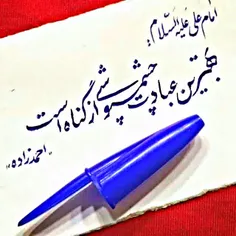 امام علی علیه السلام:
بهترین عبادت چشم پوشی از گناه است
"احمدزاده"